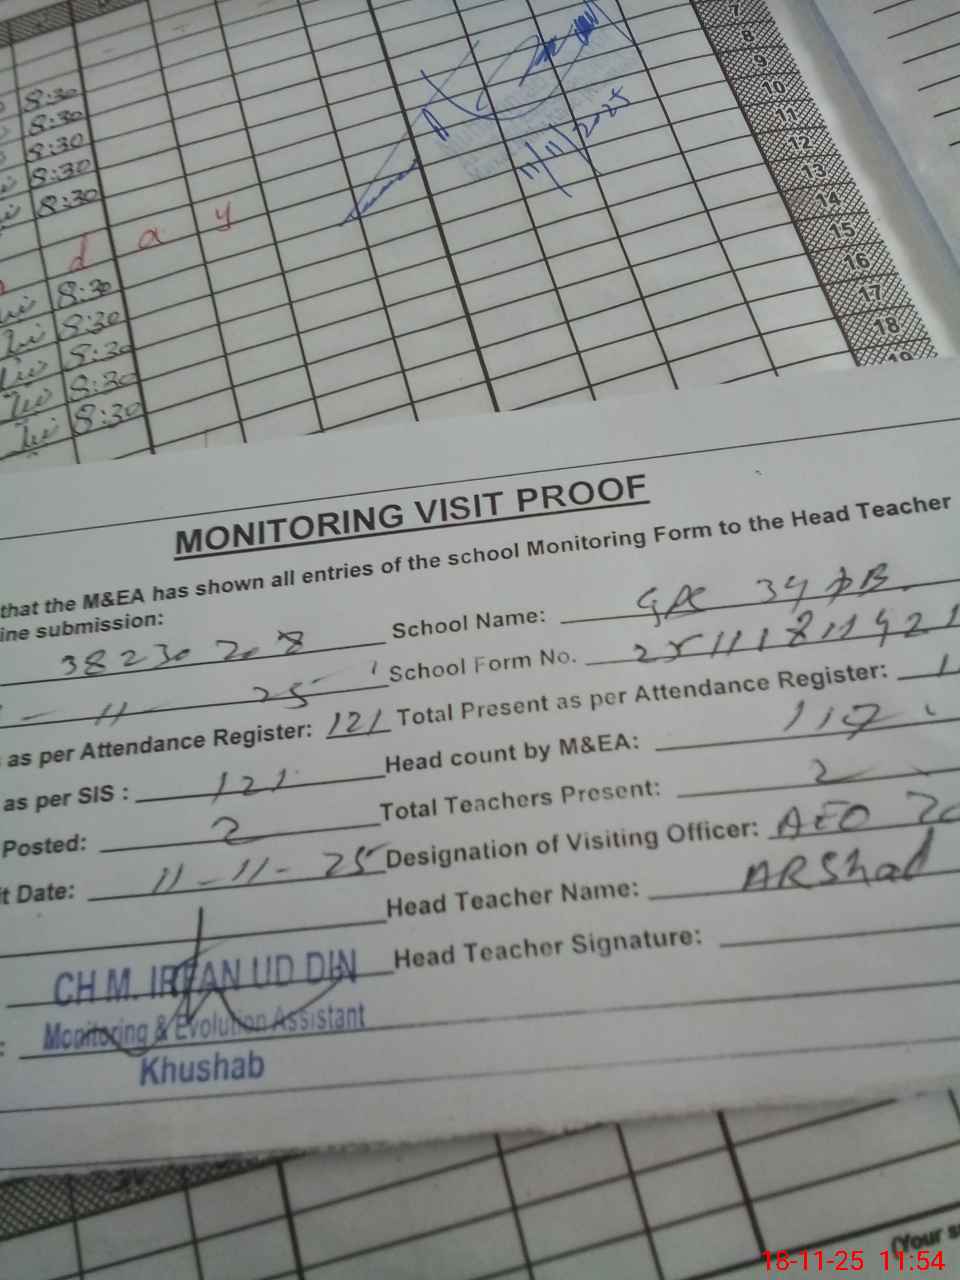 8:30
8:30
8:30
8:30
8:30
d a y
8:30
8:30
8:30
8:30
8:30
11/11/2025
7
8
9
10
11
12
13
14
15
16
17
18
19
MONITORING VISIT PROOF
that the M&EA has shown all entries of the school Monitoring Form to the Head Teacher
ine submission:
38230208 School Name: GPS 34 DB
- 11 - 25 School Form No. 25111811921
as per Attendance Register: 121 Total Present as per Attendance Register:
as per SIS : 121 Head count by M&EA:
Posted: 2 Total Teachers Present: 2
t Date: 11-11-25 Designation of Visiting Officer: AEO
Head Teacher Name: ARShad
Head Teacher Signature:
CH M. IRFAN UD DIN
Monitoring & Evolution Assistant
Khushab
(Your s
18-11-25 11:54